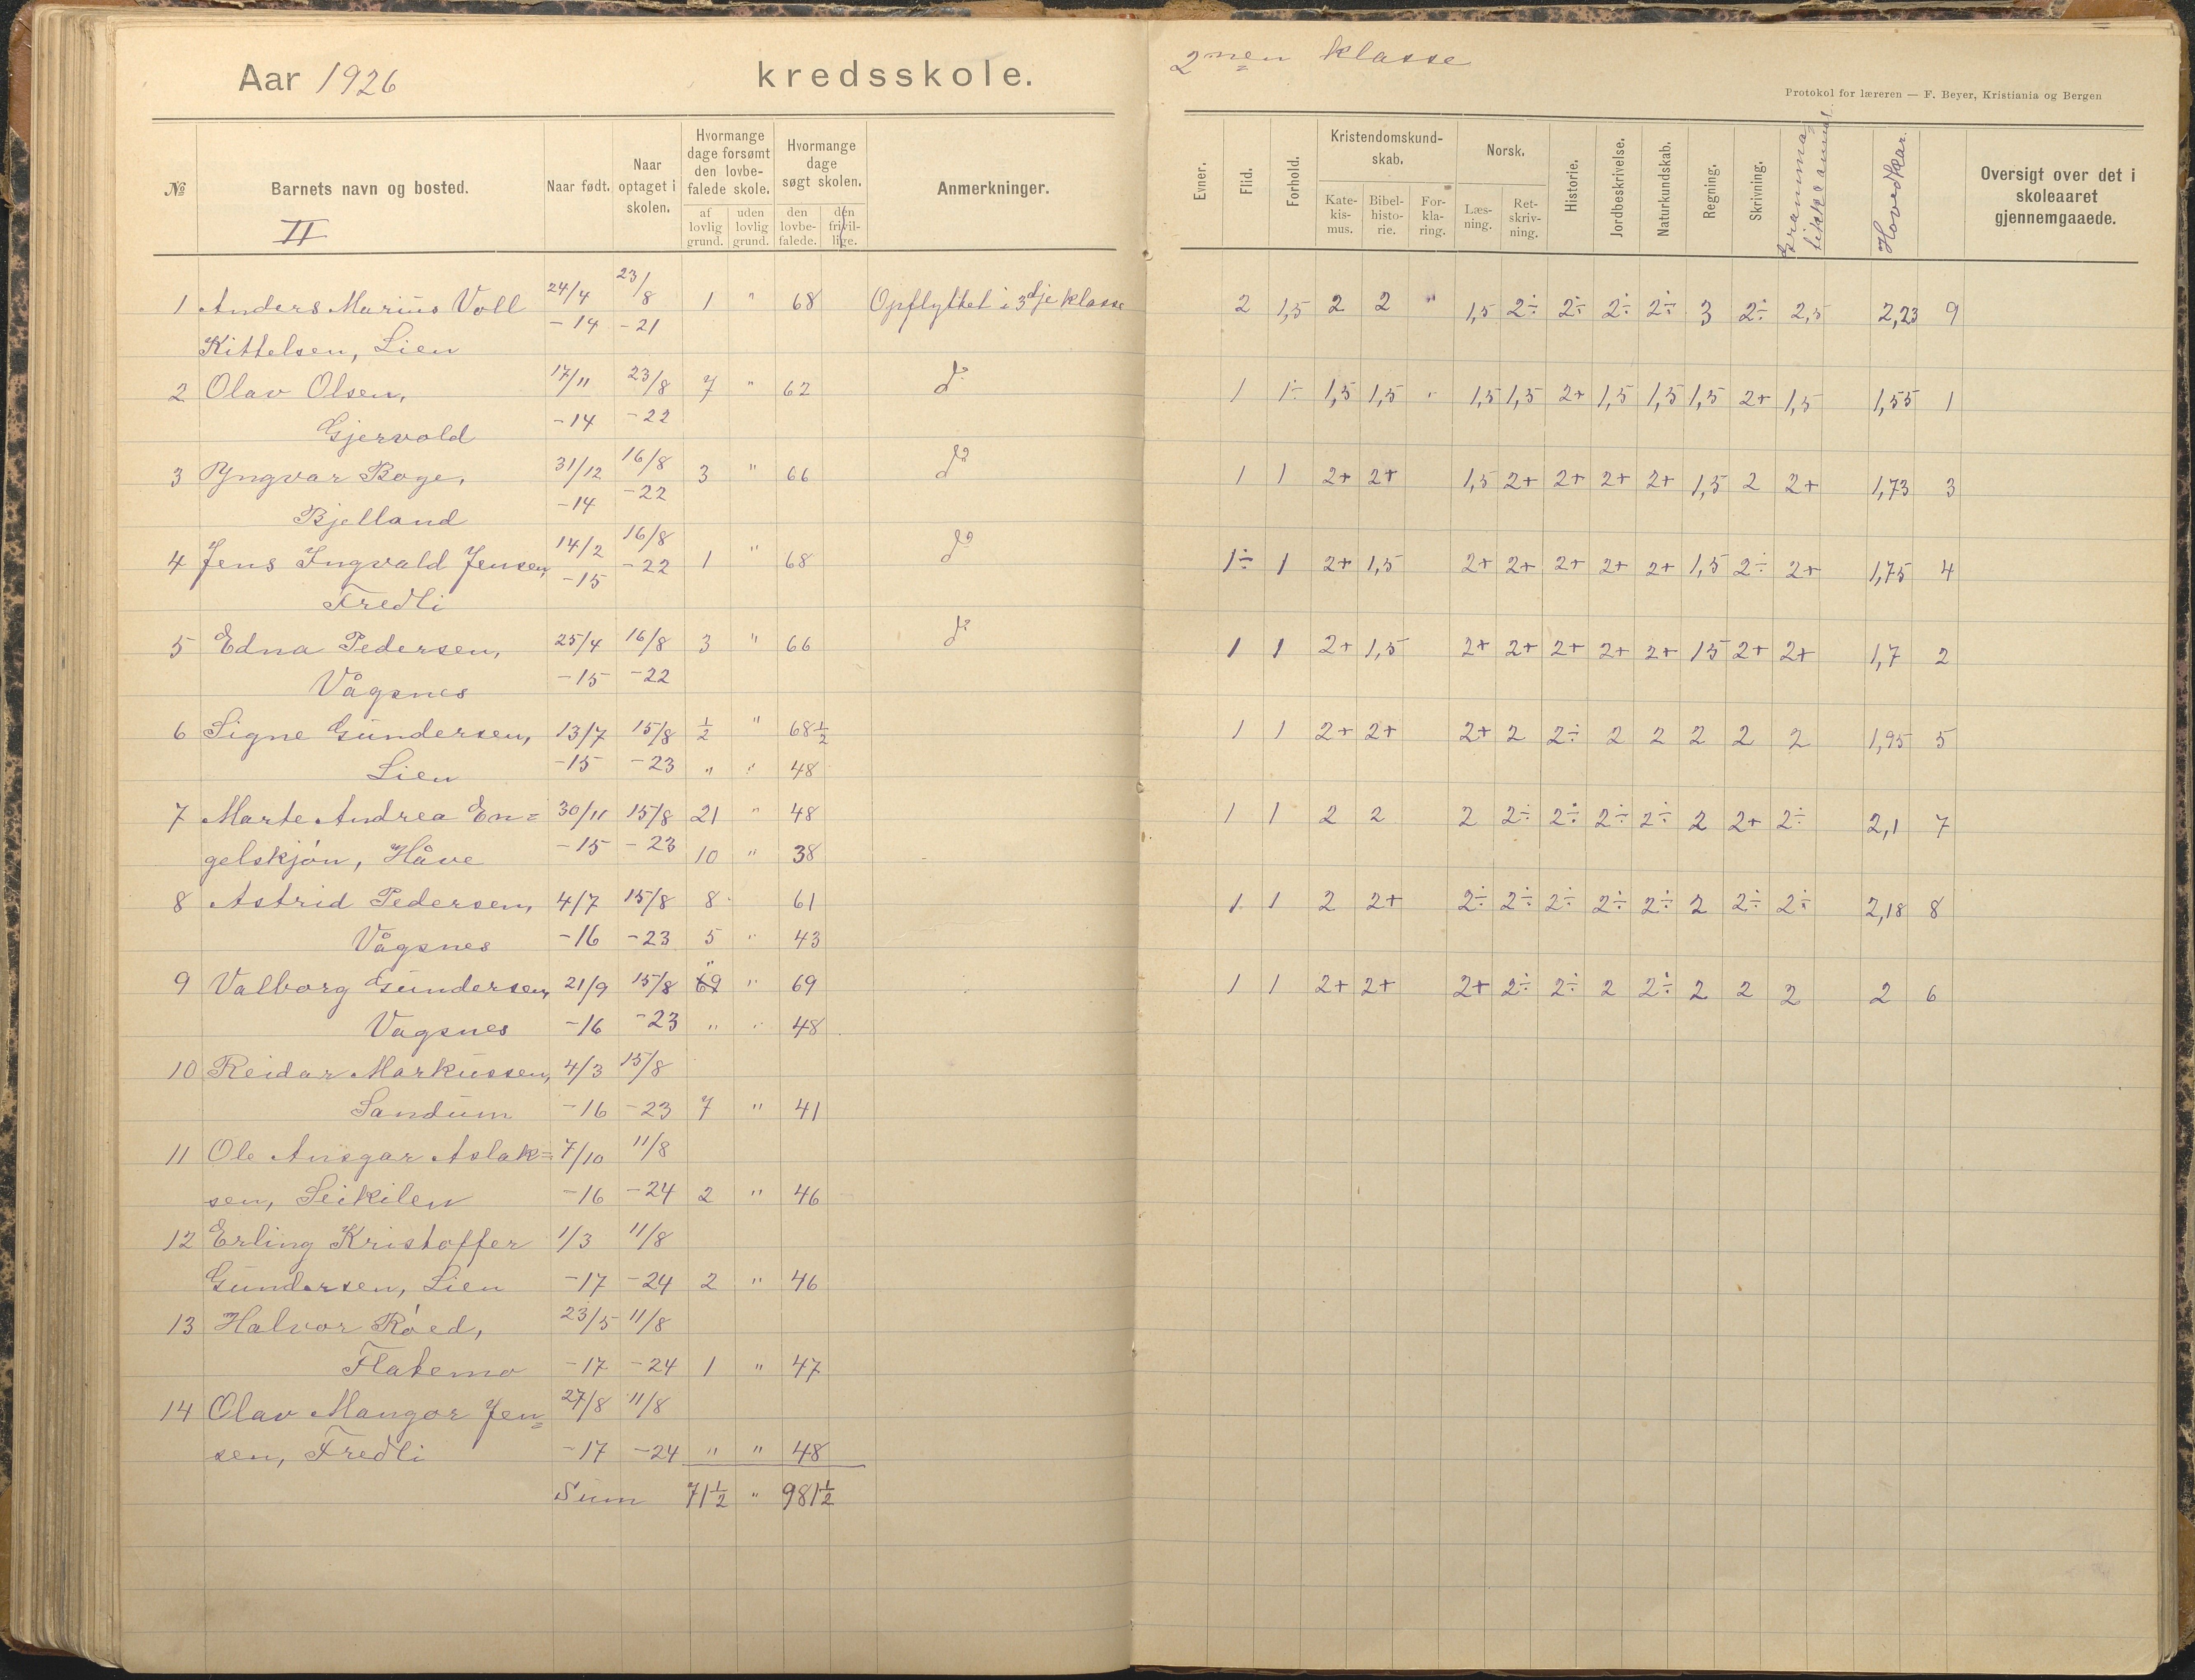 Aar 1926 kredsskole.
№ Barnets navn og bosted. Naar født. Naar optaget i skolen. Hvormange dage forsømt den lovbefalede skole. Hvormange dage søgt skolen. Anmerkninger.
af lovlig grund. uden lovlig grund. den lovbefalede. den frivillige.
II
1 Anders Marius Voll 24/4 23/8 1 " 68 Opflyttet i 3dje klasse
Kittelsen, Lien -14 -21
2 Olav Olsen, 17/11 23/8 7 " 62 do
Gjervold -14 -22
3 Yngvar Boge, 31/12 16/8 3 " 66 do
Bjelland -14 -22
4 Jens Ingvald Jensen, 14/2 16/8 1 " 68 do
Fredli -15 -22
5 Edna Pedersen, 25/4 16/8 3 " 66 do
Vågsnes -15 -22
6 Signe Gundersen, 13/7 15/8 ½ " 68½
Lien -15 -23 " " 48
7 Marte Andrea En= 30/11 15/8 21 " 48
gelskjón, Håve -15 -23 10 " 38
8 Astrid Pedersen, 4/7 15/8 8 61
Vågsnes -16 -23 5 " 43
9 Valborg Gundersen, 21/9 15/8 " 69
Vagsnes -16 -23 " " 48
10 Reidar Markussen, 4/3 15/8
Sandum -16 -23 7 " 41
11 Ole Ansgar Aslak= 7/10 11/8
sen, Leikilen -16 -24 2 " 46
12 Erling Kristoffer 1/3 11/8
Gundersen, Lien -17 -24 2 " 46
13 Halvor Róed, 23/5 11/8
Flatemo -17 -24 1 " 47
14 Olav Mangor Jen= 27/8 11/8
sen, Fredli -17 -24 " " 48
Sum 71½ " 981½
2nen klasse
Protokol for læreren — F. Beyer, Kristiania og Bergen
Evner. Flid. Forhold. Kristendomskundskab. Norsk. Historie. Jordbeskrivelse. Naturkundskab. Regning. Skrivning. Hovedkar. Oversigt over det i skoleaaret gjennemgaaede.
Katekismus. Bibelhistorie. Forklaring. Læsning. Retskrivning.
2 1,5 2 2 " 1,5 2÷ 2÷ 2÷ 2÷ 3 2÷ 2,5 2,23 9
1 1÷ 1,5 1,5 " 1,5 1,5 2+ 1,5 1,5 1,5 2+ 1,5 1,55 1
1 1 2+ 2+ 1,5 2+ 2+ 2+ 2+ 1,5 2 2+ 1,73 3
1÷ 1 2+ 1,5 2+ 2+ 2+ 2+ 2+ 1,5 2÷ 2+ 1,75 4
1 1 2+ 1,5 2+ 2+ 2+ 2+ 2+ 15 2+ 2+ 1,7 2
1 1 2+ 2+ 2+ 2 2÷ 2 2 2 2 2 1,95 5
1 1 2 2 2 2÷ 2÷ 2÷ 2÷ 2 2+ 2÷ 2,1 7
1 1 2 2+ 2÷ 2÷ 2÷ 2÷ 2÷ 2 2÷ 2÷ 2,18 8
1 1 2+ 2+ 2+ 2÷ 2÷ 2 2÷ 2 2 2 2 6